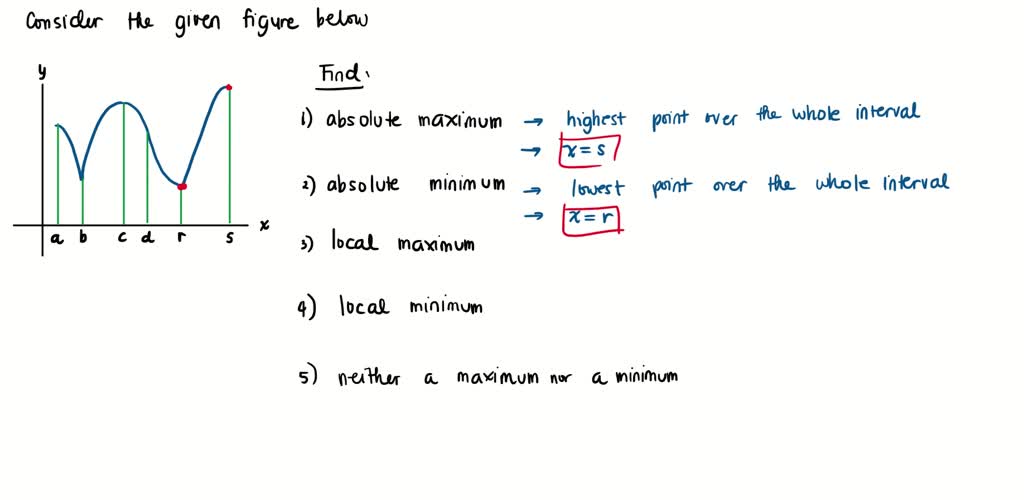 Consider the given figure below
y
Find.
1) absolute maximum → highest point over the whole interval
→ x = s
2) absolute minimum → lowest point over the whole interval
→ x = r
3) local maximum
4) local minimum
5) neither a maximum nor a minimum
a b c d r s x